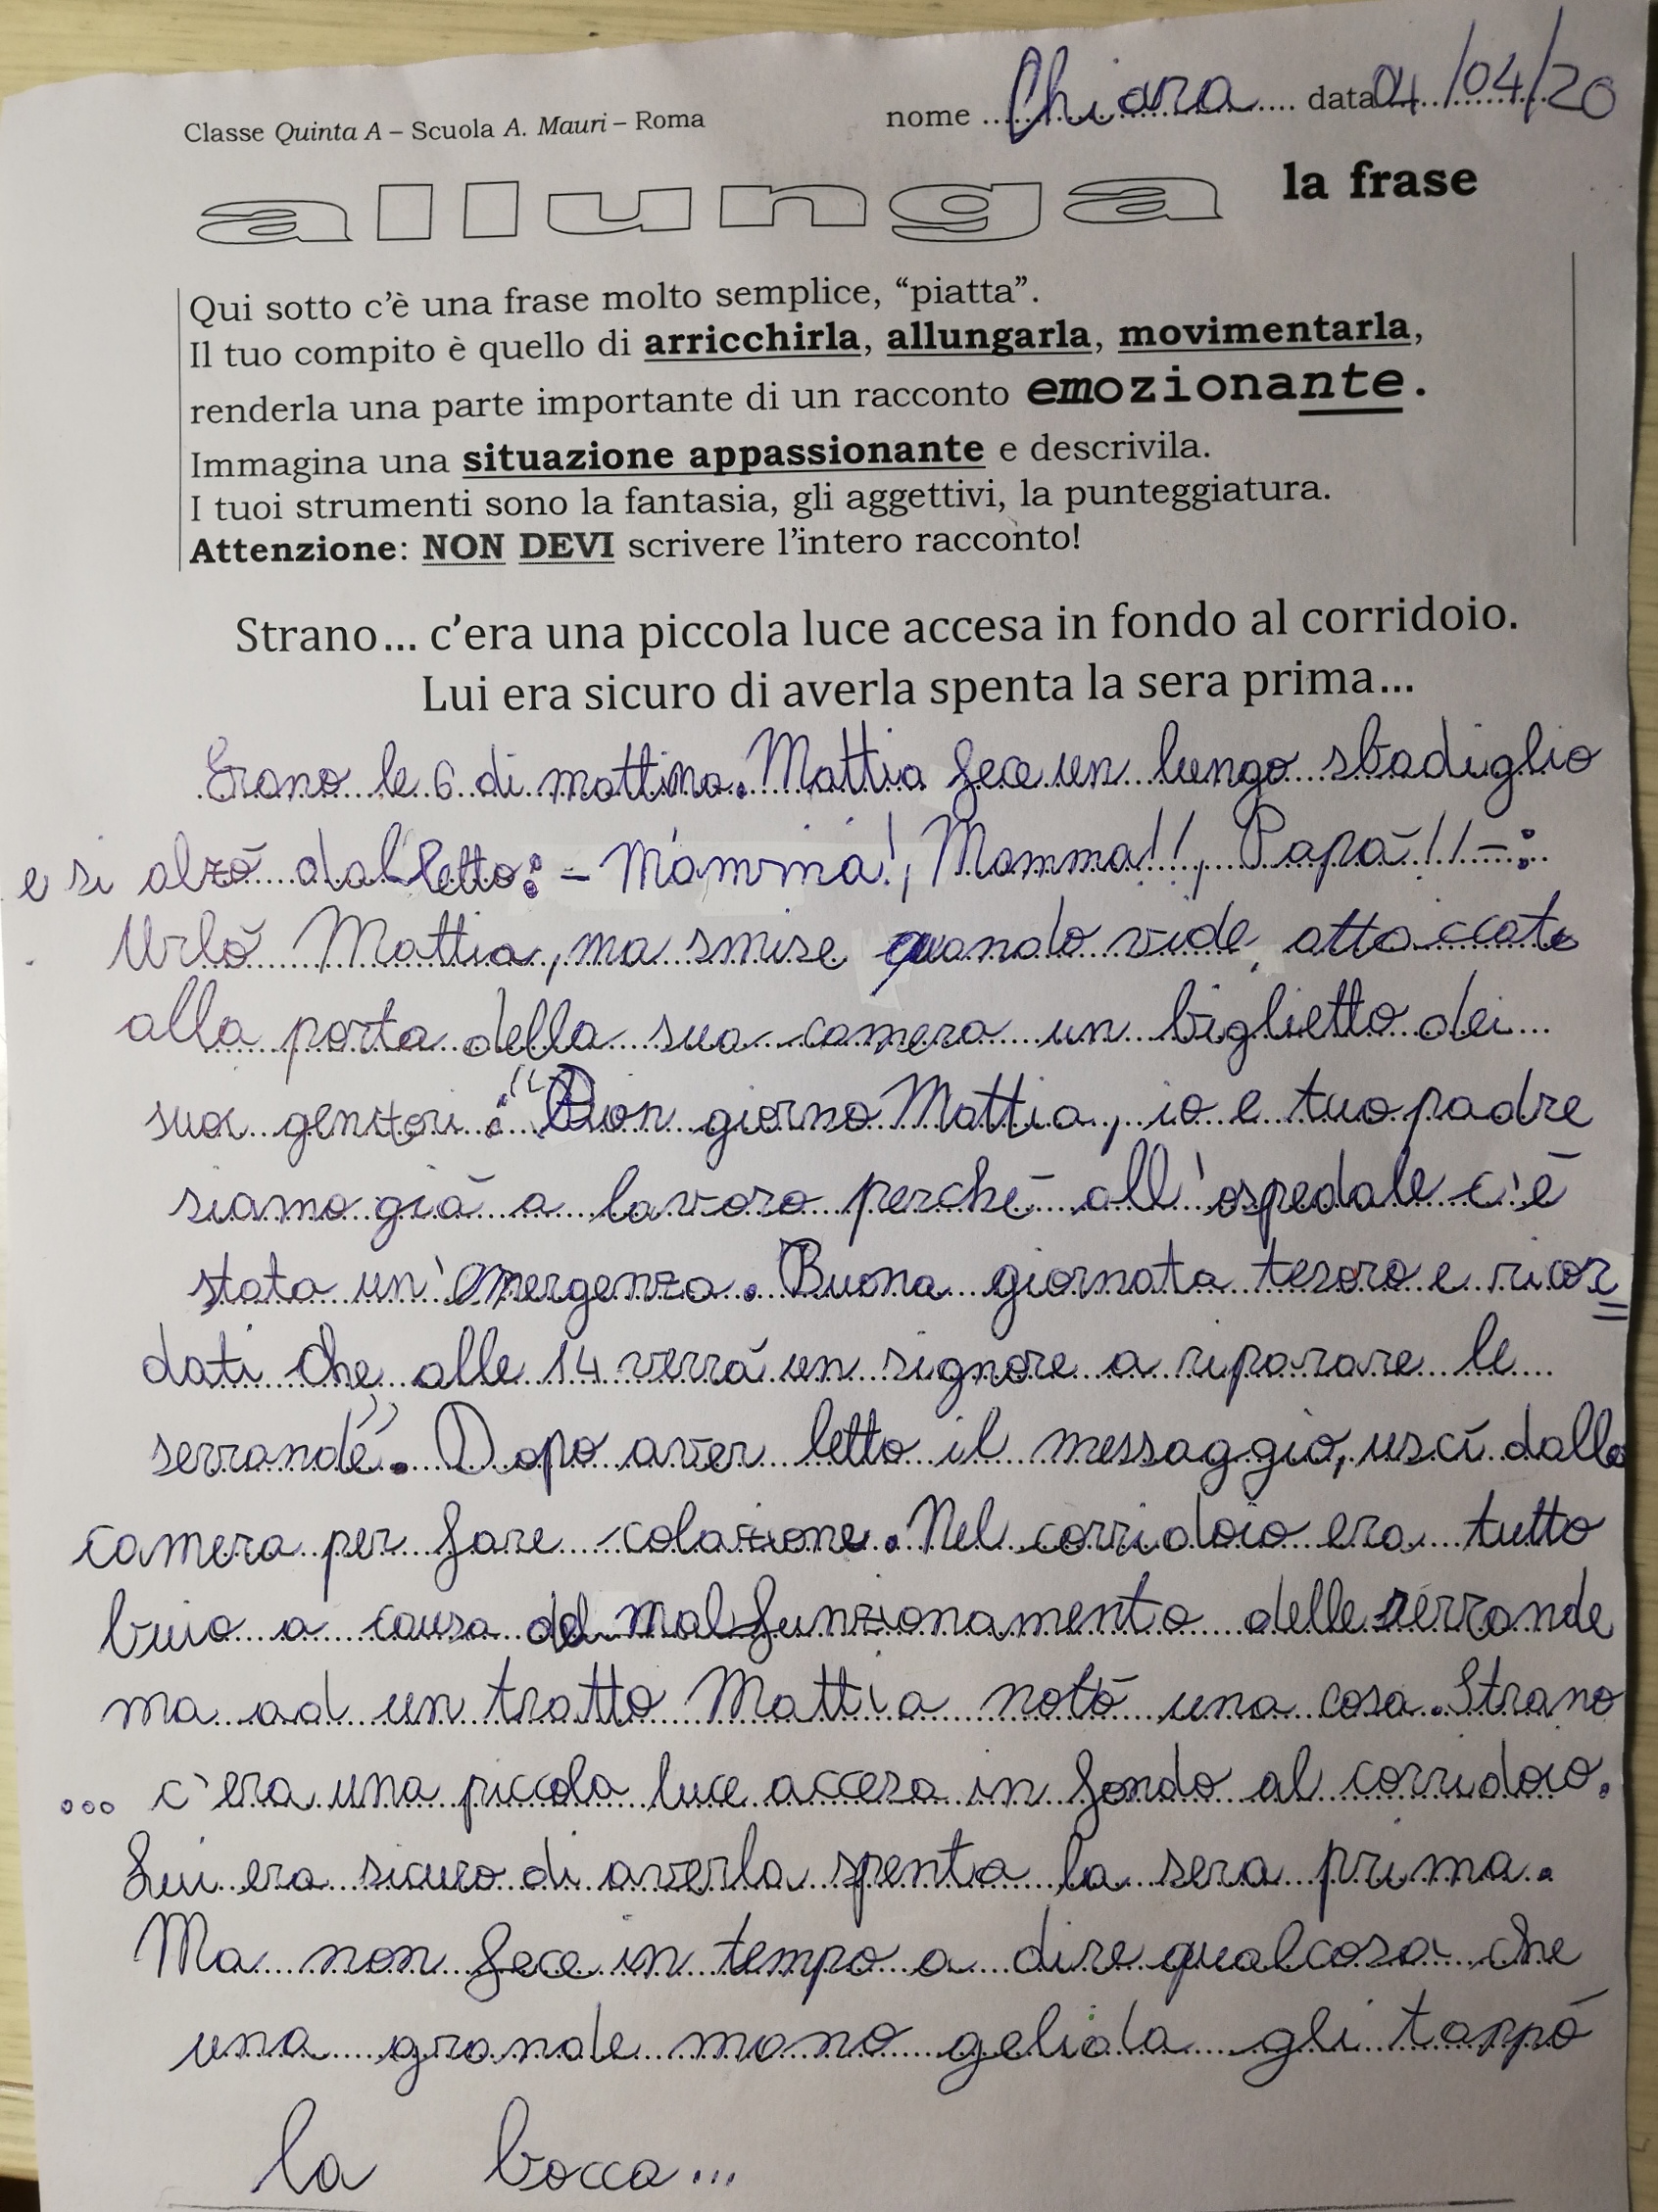 Classe Quinta A – Scuola A. Mauri – Roma nome Chiara data 04/04/20
allunga la frase
Qui sotto c'è una frase molto semplice, "piatta".
Il tuo compito è quello di arricchirla, allungarla, movimentarla,
renderla una parte importante di un racconto emozionante.
Immagina una situazione appassionante e descrivila.
I tuoi strumenti sono la fantasia, gli aggettivi, la punteggiatura.
Attenzione: NON DEVI scrivere l'intero racconto!
Strano... c'era una piccola luce accesa in fondo al corridoio.
Lui era sicuro di averla spenta la sera prima...
Erano le 6 di mattina. Mattia fece un lungo sbadiglio
e si alzò dal letto: - Mamma!, Mamma!!, Papà!! -:
Urlò Mattia, ma smise quando vide, attaccato
alla porta della sua camera un biglietto dei
suoi genitori: "Buon giorno Mattia, io e tuo padre
siamo già a lavoro perché all'ospedale c'è
stata un'emergenza. Buona giornata tesoro e ricor=
dati che alle 14 verrà un signore a riparare le
serrande". Dopo aver letto il messaggio, uscì dalla
camera per fare colazione. Nel corridoio era tutto
buio a causa del malfunzionamento delle serrande
ma ad un tratto Mattia notò una cosa. Strano
... c'era una piccola luce accesa in fondo al corridoio.
Lui era sicuro di averla spenta la sera prima.
Ma non fece in tempo a dire qualcosa che
una grande mano gelida gli tappò
la bocca...